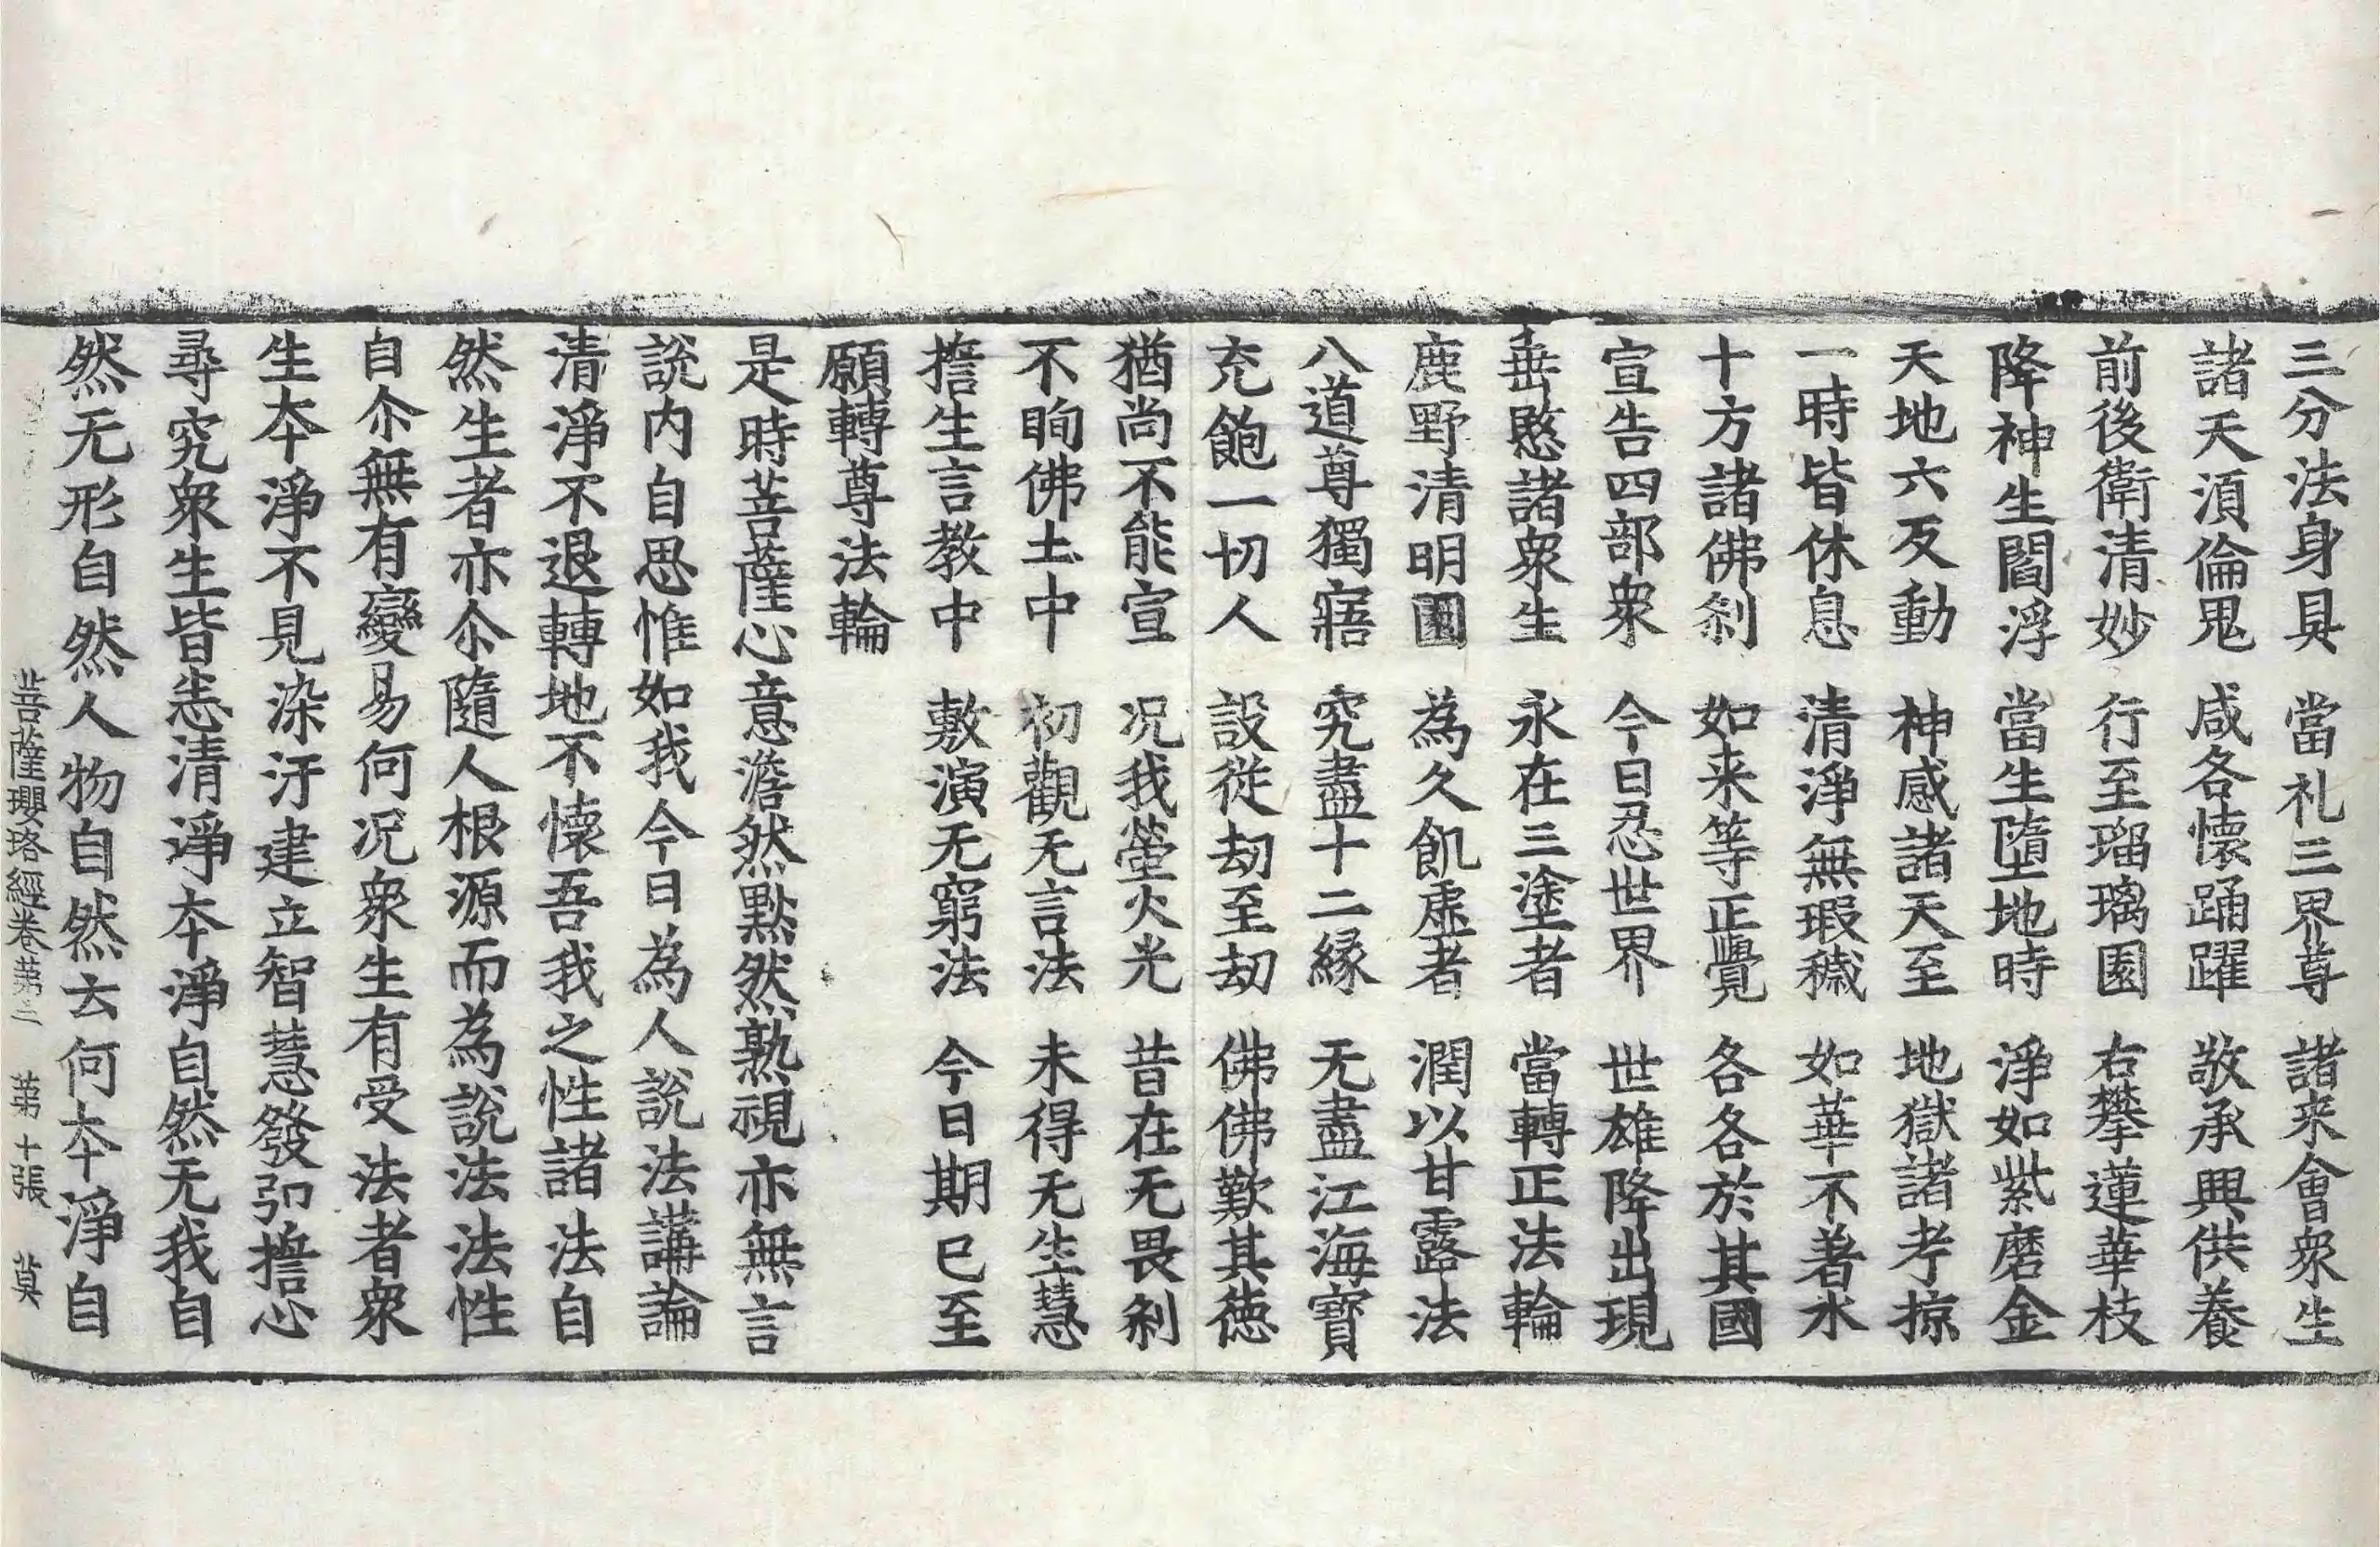 三分法身具　當礼三界尊　諸来會衆生
諸天湏倫鬼　咸各懷踊躍　敬承興供養
前後衛清妙　行至瑠璃園　右攀蓮華枝
降神生閻浮　當生墮地時　淨如紫磨金
天地六反動　神感諸天至　地獄諸考掠
一時皆休息　清淨無瑕穢　如華不著水
十方諸佛刹　如来等正覺　各各於其國
宣告四部衆　今日忍世界　世雄降出現
垂愍諸衆生　永在三塗者　當轉正法輪
鹿野清明園　為久飢虛者　潤以甘露法
八道尊獨寤　究盡十二緣　无盡江海寶
充飽一切人　設從劫至劫　佛佛歎其德
猶尚不能宣　况我螢火光　昔在无畏刹
不眴佛土中　初觀无言法　未得无生慧
擔生言教中　敷演无窮法　今日期已至
願轉尊法輪
是時菩薩心意澹然黙然熟視亦無言
說内自思惟如我今日為人說法講論
清淨不退轉地不懷吾我之性諸法自
然生者亦尒隨人根源而為說法法性
自尒無有變易何况衆生有受法者衆
生夲淨不見染汙建立智慧發弘擔心
尋究衆生皆悉清淨夲淨自然无我自
然无形自然人物自然去何夲淨自
菩薩瓔珞經卷第二　第十張　莫